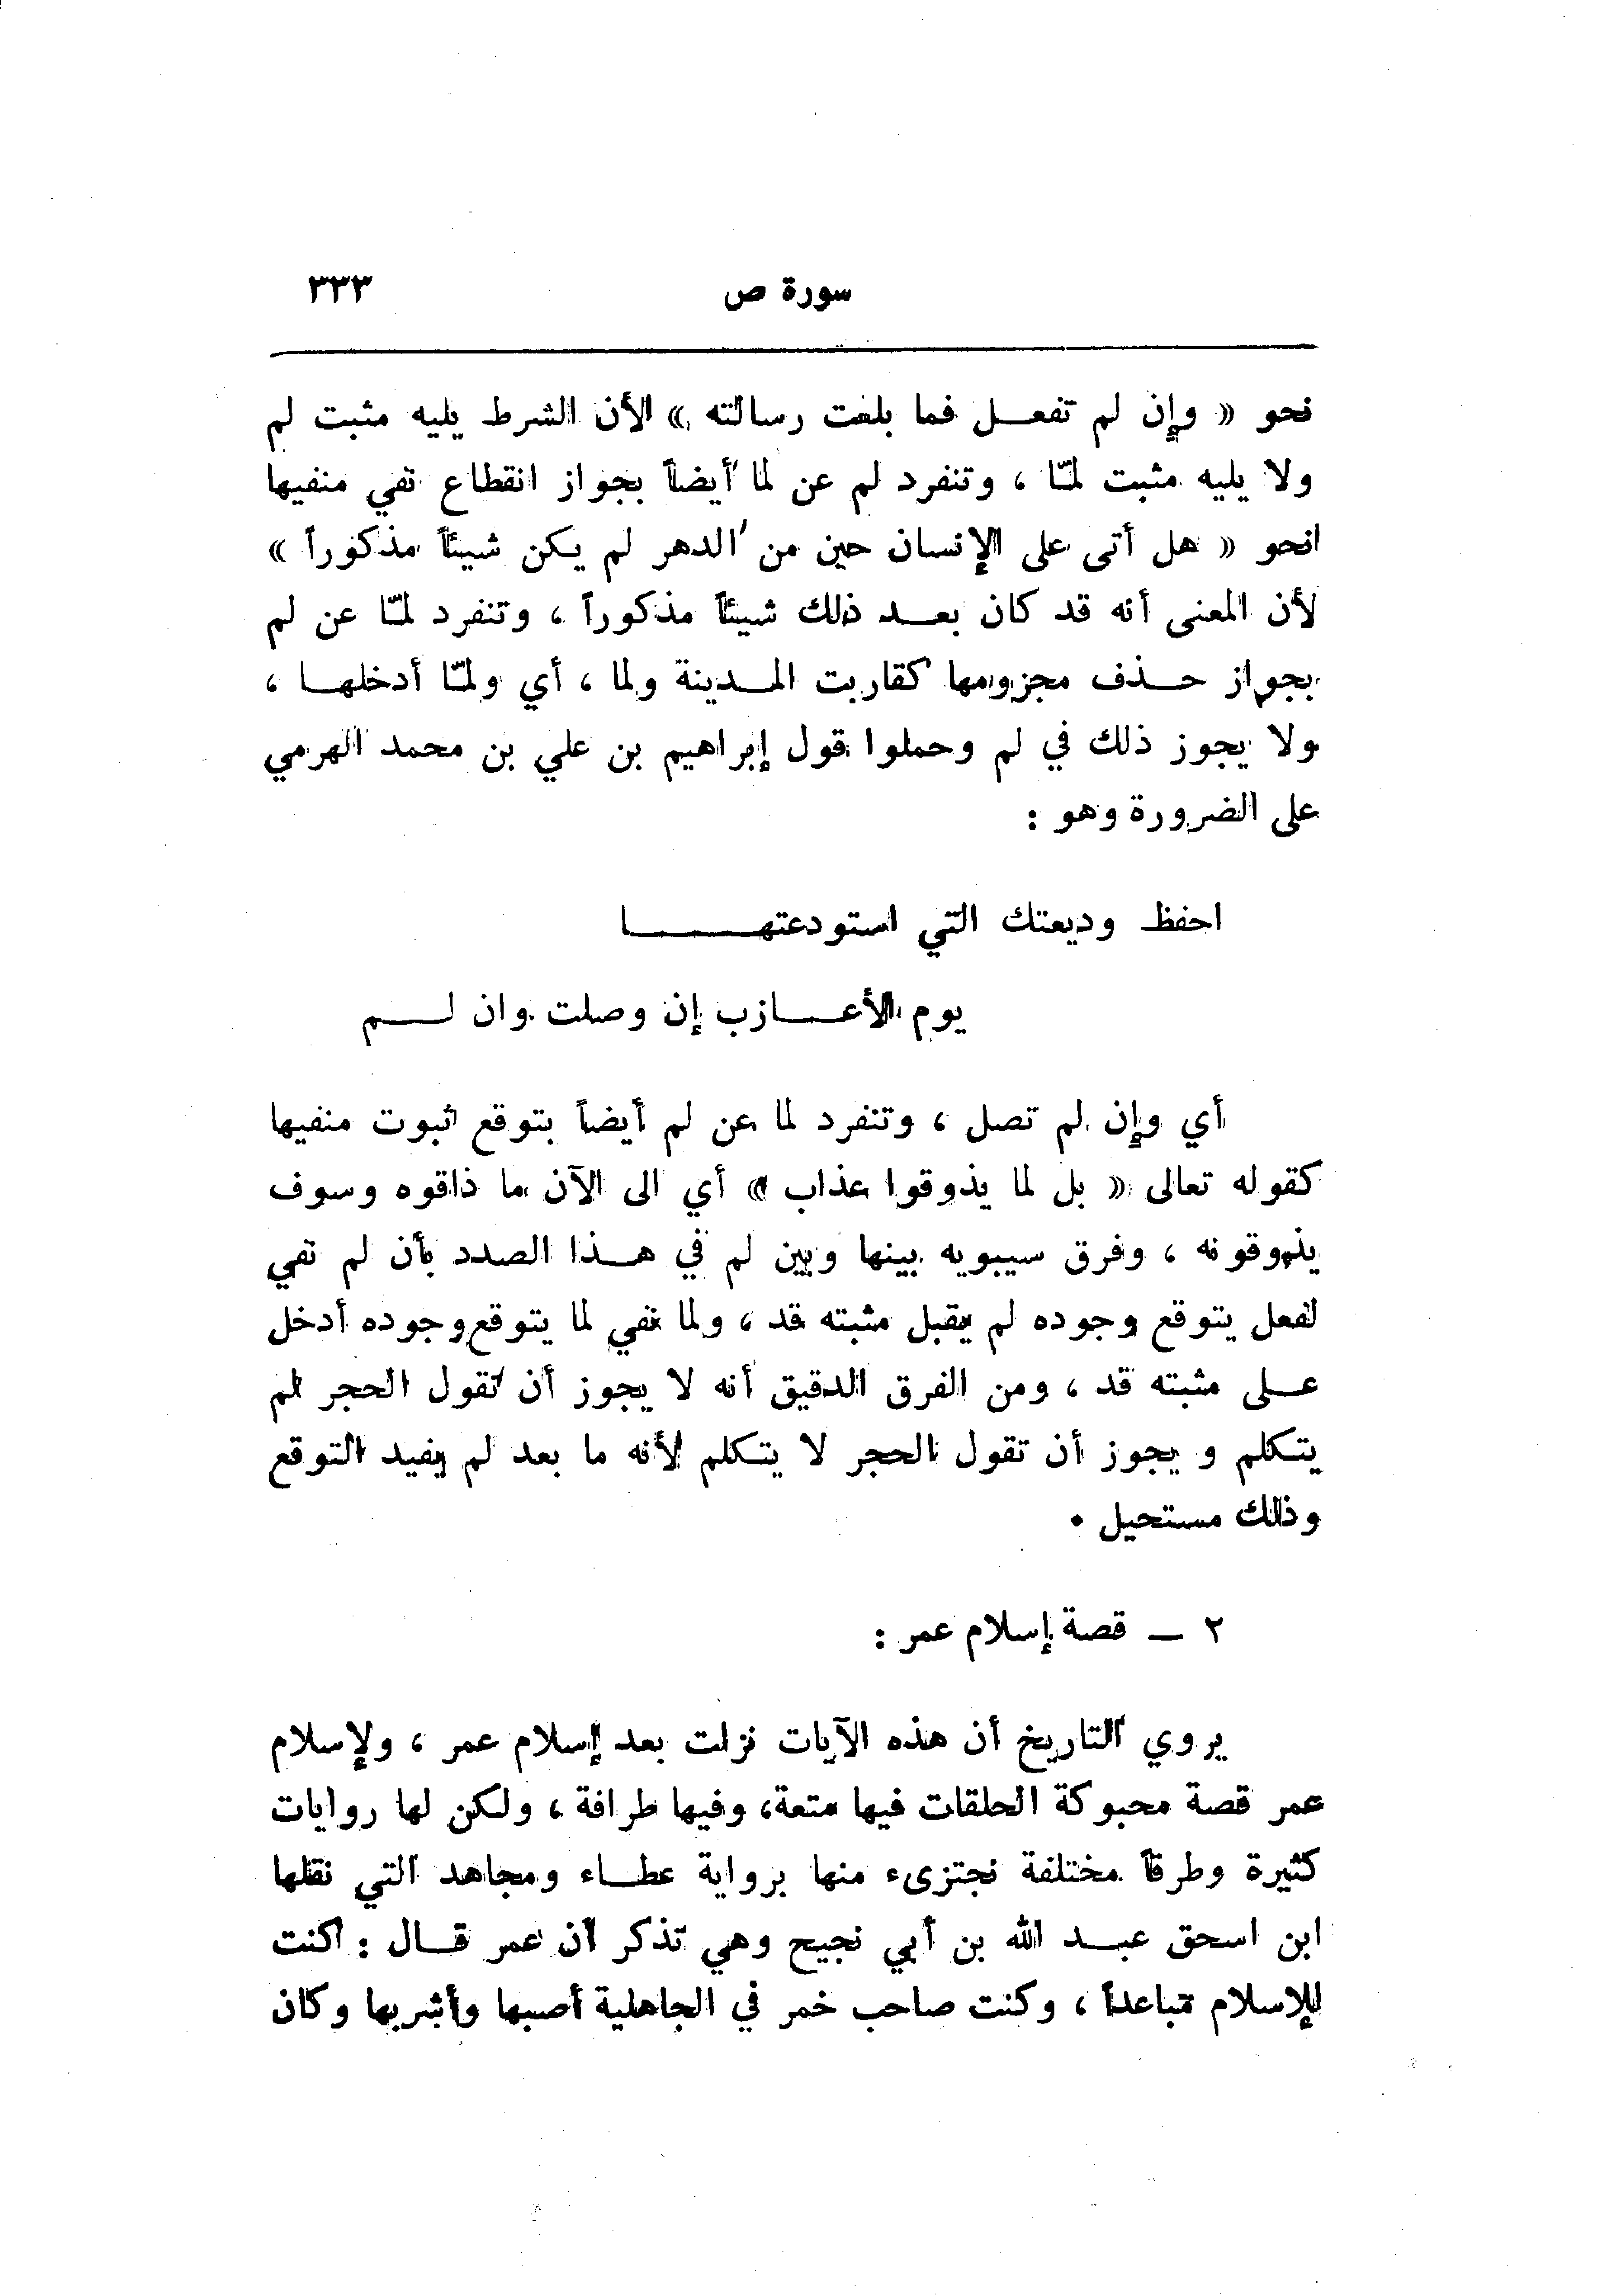 سورة ص ٣٣٣
نحو « وإن لم تفعل فما بلغت رسالته » لأن الشرط يليه مثبت لم
ولا يليه مثبت لمّا ، وتنفرد لم عن لما أيضاً بجواز انقطاع نفي منفيها
نحو « هل أتى على الإنسان حين من الدهر لم يكن شيئاً مذكوراً »
لأن المعنى أنه قد كان بعد ذلك شيئاً مذكوراً ، وتنفرد لمّا عن لم
بجواز حذف مجزومها كقاربت المدينة ولما ، أي ولمّا أدخلها ،
ولا يجوز ذلك في لم وحملوا قول إبراهيم بن علي بن محمد الهرمي
على الضرورة وهو :
احفظ وديعتك التي استودعتها
يوم الأعازب إن وصلت وان لم
أي وإن لم تصل ، وتنفرد لما عن لم أيضاً بتوقع ثبوت منفيها
كقوله تعالى « بل لما يذوقوا عذاب » أي الى الآن ما ذاقوه وسوف
يذوقونه ، وفرق سيبويه بينها وبين لم في هذا الصدد بأن لم نفي
لفعل يتوقع وجوده لم يقبل مثبته قد ، ولما نفي لما يتوقع وجوده أدخل
على مثبته قد ، ومن الفرق الدقيق أنه لا يجوز أن تقول الحجر لم
يتكلم ويجوز أن تقول الحجر لا يتكلم لأنه ما بعد لم يفيد التوقع
وذلك مستحيل .
٢ – قصة إسلام عمر :
يروي التاريخ أن هذه الآيات نزلت بعد إسلام عمر ، ولإسلام
عمر قصة محبوكة الحلقات فيها متعة، وفيها طرافة ، ولكن لها روايات
كثيرة وطرقاً مختلفة نجتزىء منها برواية عطاء ومجاهد التي نقلها
ابن اسحق عبد الله بن أبي نجيح وهي تذكر أن عمر قال : كنت
للإسلام مباعداً ، وكنت صاحب خمر في الجاهلية أصبها وأشربها وكان